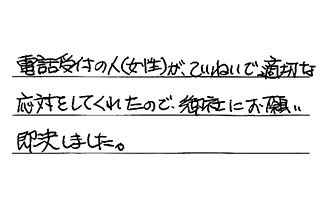 電話受付の人(女性)が、ていねいで適切な
応対をしてくれたので、御社にお願い
即決しました。